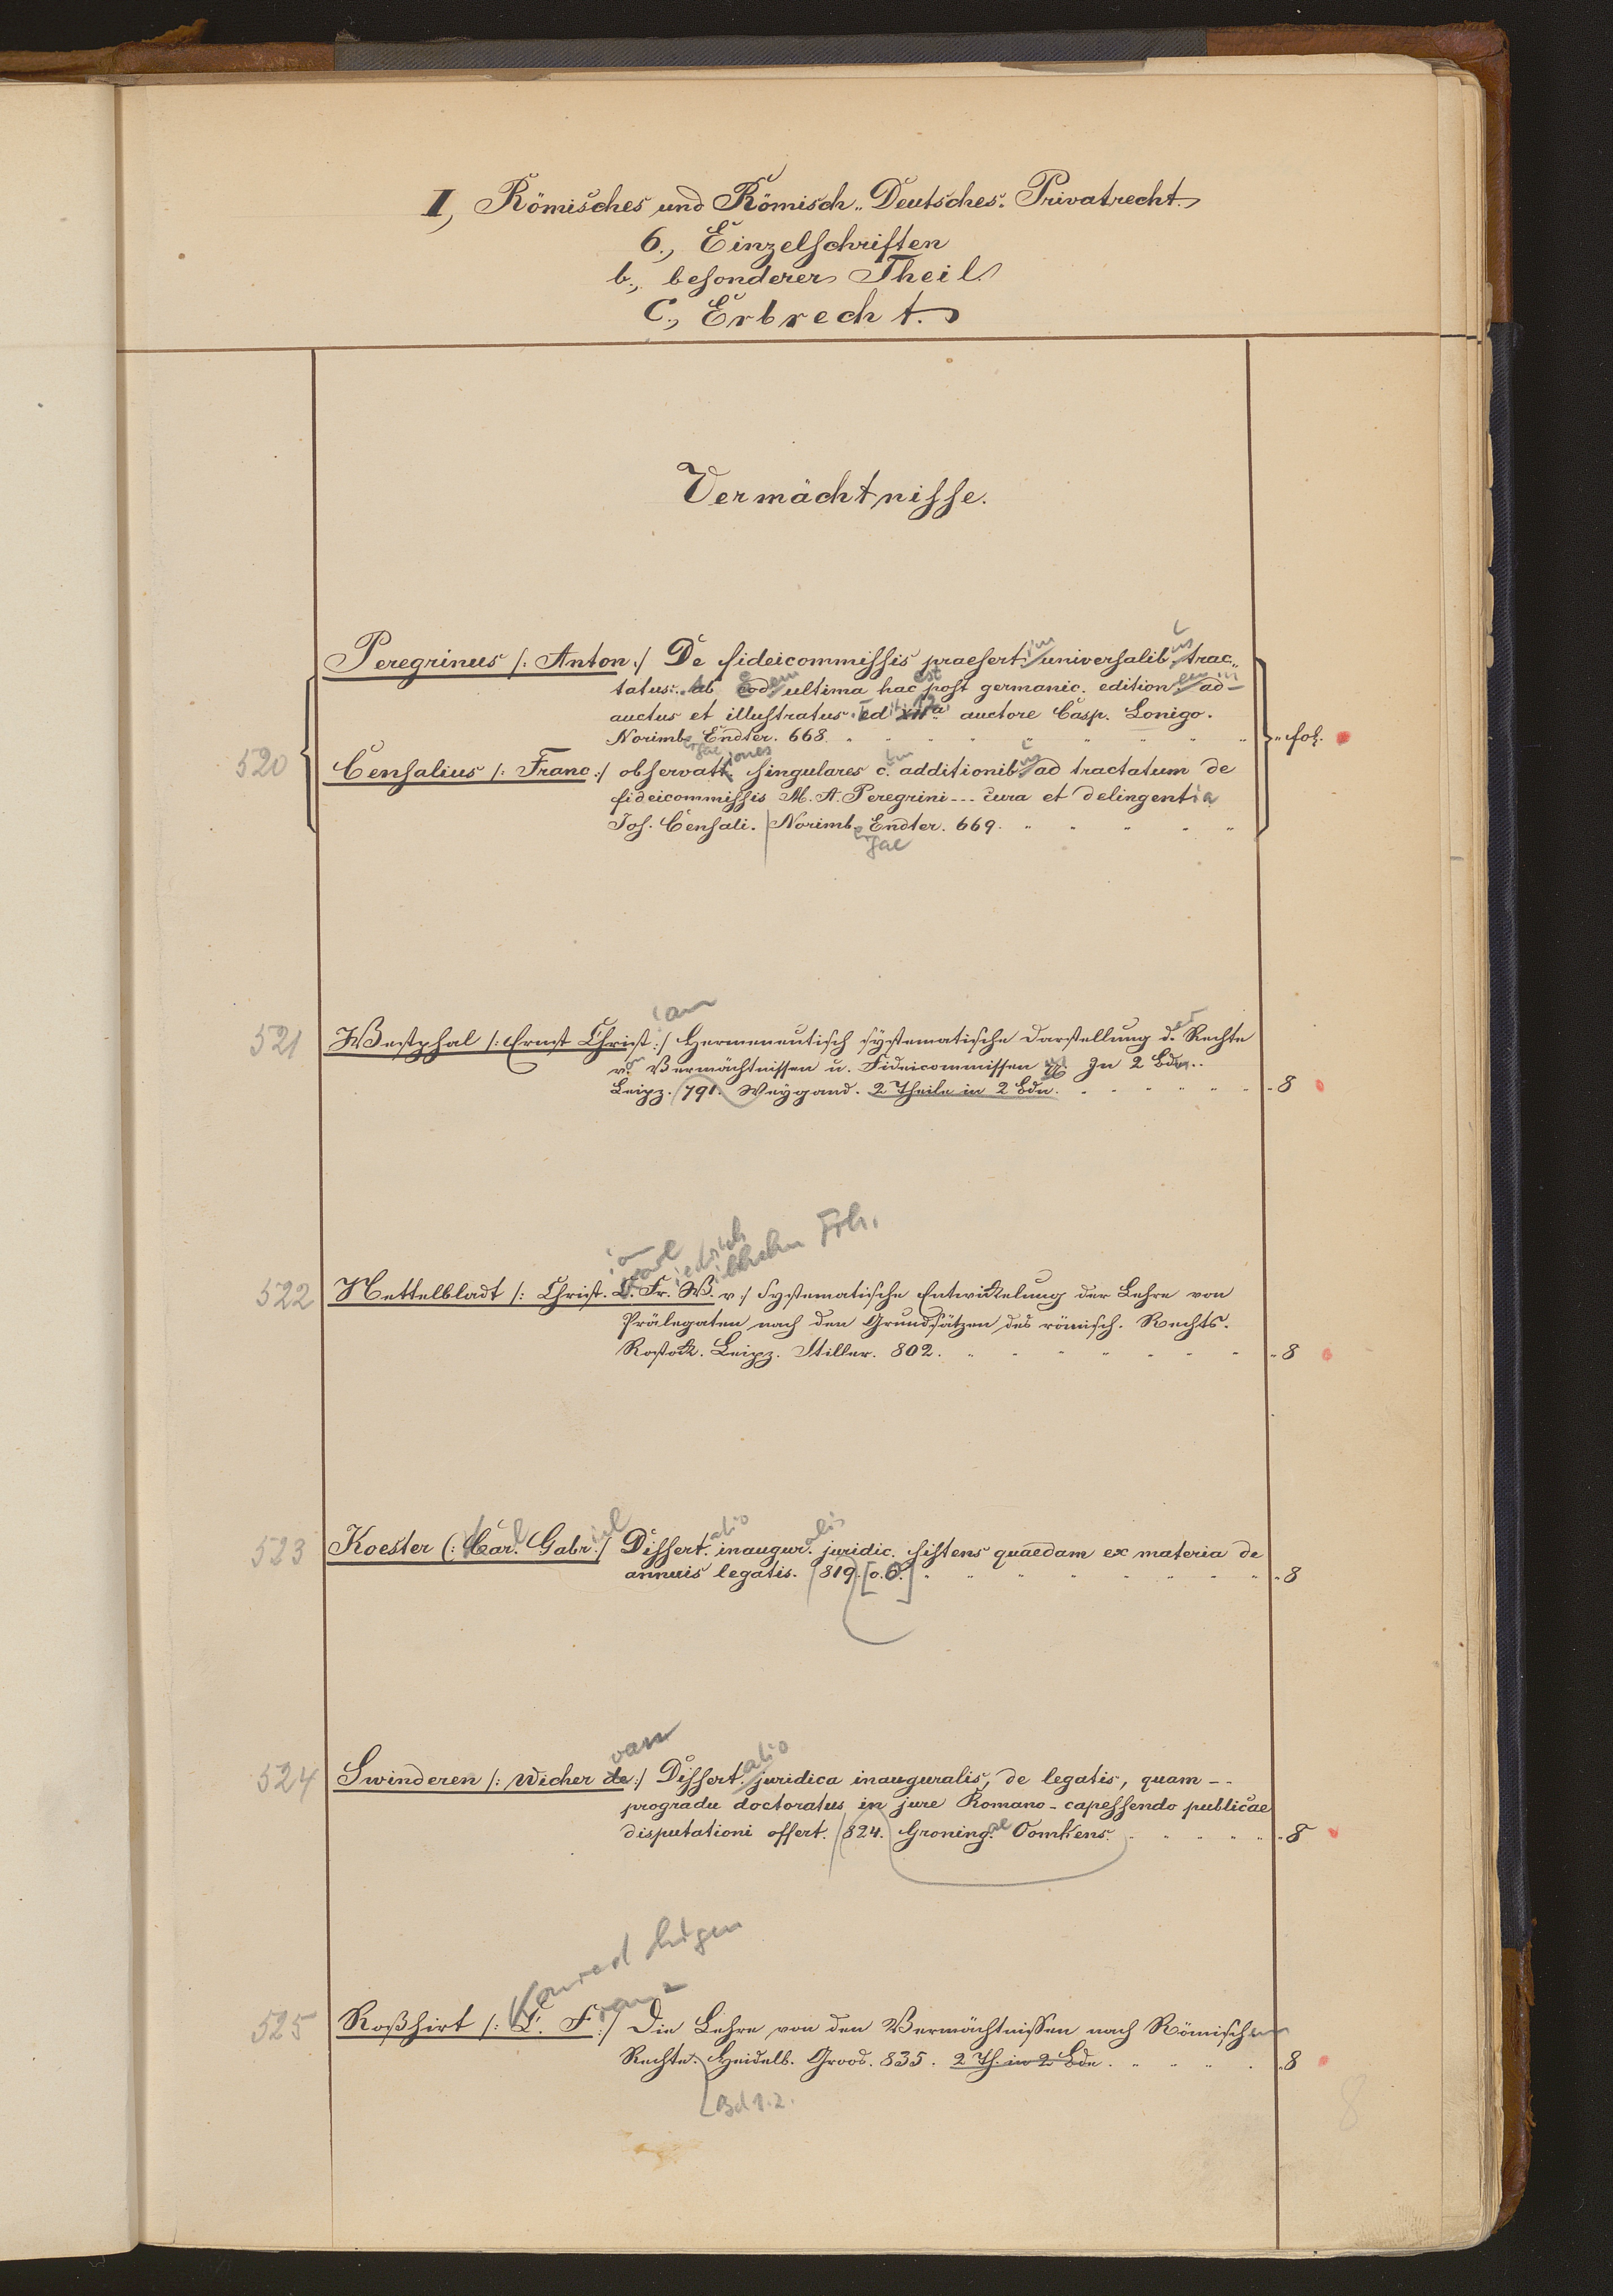 I, Römisches und Römisch-Deutsches Privatrecht.
6., Einzelschriften
b., besonderer Theil.
C., Erbrecht.
Vermächtnisse.
520
Peregrinus /: Anton :/ De fideicommissis praesertim universalibus trac-
tatus. Ab eodem ultima hac est post germanic. editionem ad-
auctus et illustratus. Ed 12a auctore Casp. Lonigo.
Norimbergae Endter. 668. fol.
Censalius /: Franc :/ observationes singulares cum additionibus ad tractatum de
fideicommissis M. A. Peregrini --- cura et delingentia
Jos. Censali. Norimbergae Endter. 669.
521 Westphal /: Ernst Christian :/ Hermeneutisch systematische Darstellung der Rechte
von Vermächtnissen u. Fideicommissen In 2 Bdn.
Leipz. 791. Weygand. 2 Theile in 2 Bdn. 8
522 Nettelbladt /: Christian Carl Friedrich Wilhelm Frh. v :/ Systematische Entwickelung der Lehre von
Prälegaten nach den Grundsätzen des römisch. Rechts.
Rostock. Leipz. Stiller. 802. 8
523 Koester (: Karl Gabriel :/ Dissertatio inauguralis juridic. sistens quaedam ex materia de
annuis legatis. 819. [o. O.] 8
524 Swinderen /: Wicher de van :/ Dissertatio juridica inauguralis, de legatis, quam --
progradu doctoratus in jure Romano - capessendo publicae
disputationi offert. 824. Groningae Oomkens. 8
525 Roßhirt /: Konrad Eugen Franz :/ Die Lehre von den Vermächtnissen nach Römischem
Rechte. Heidelb. Groos. 835. 2 Th. in 2 Bdn. 8
Bd 1.2.
8